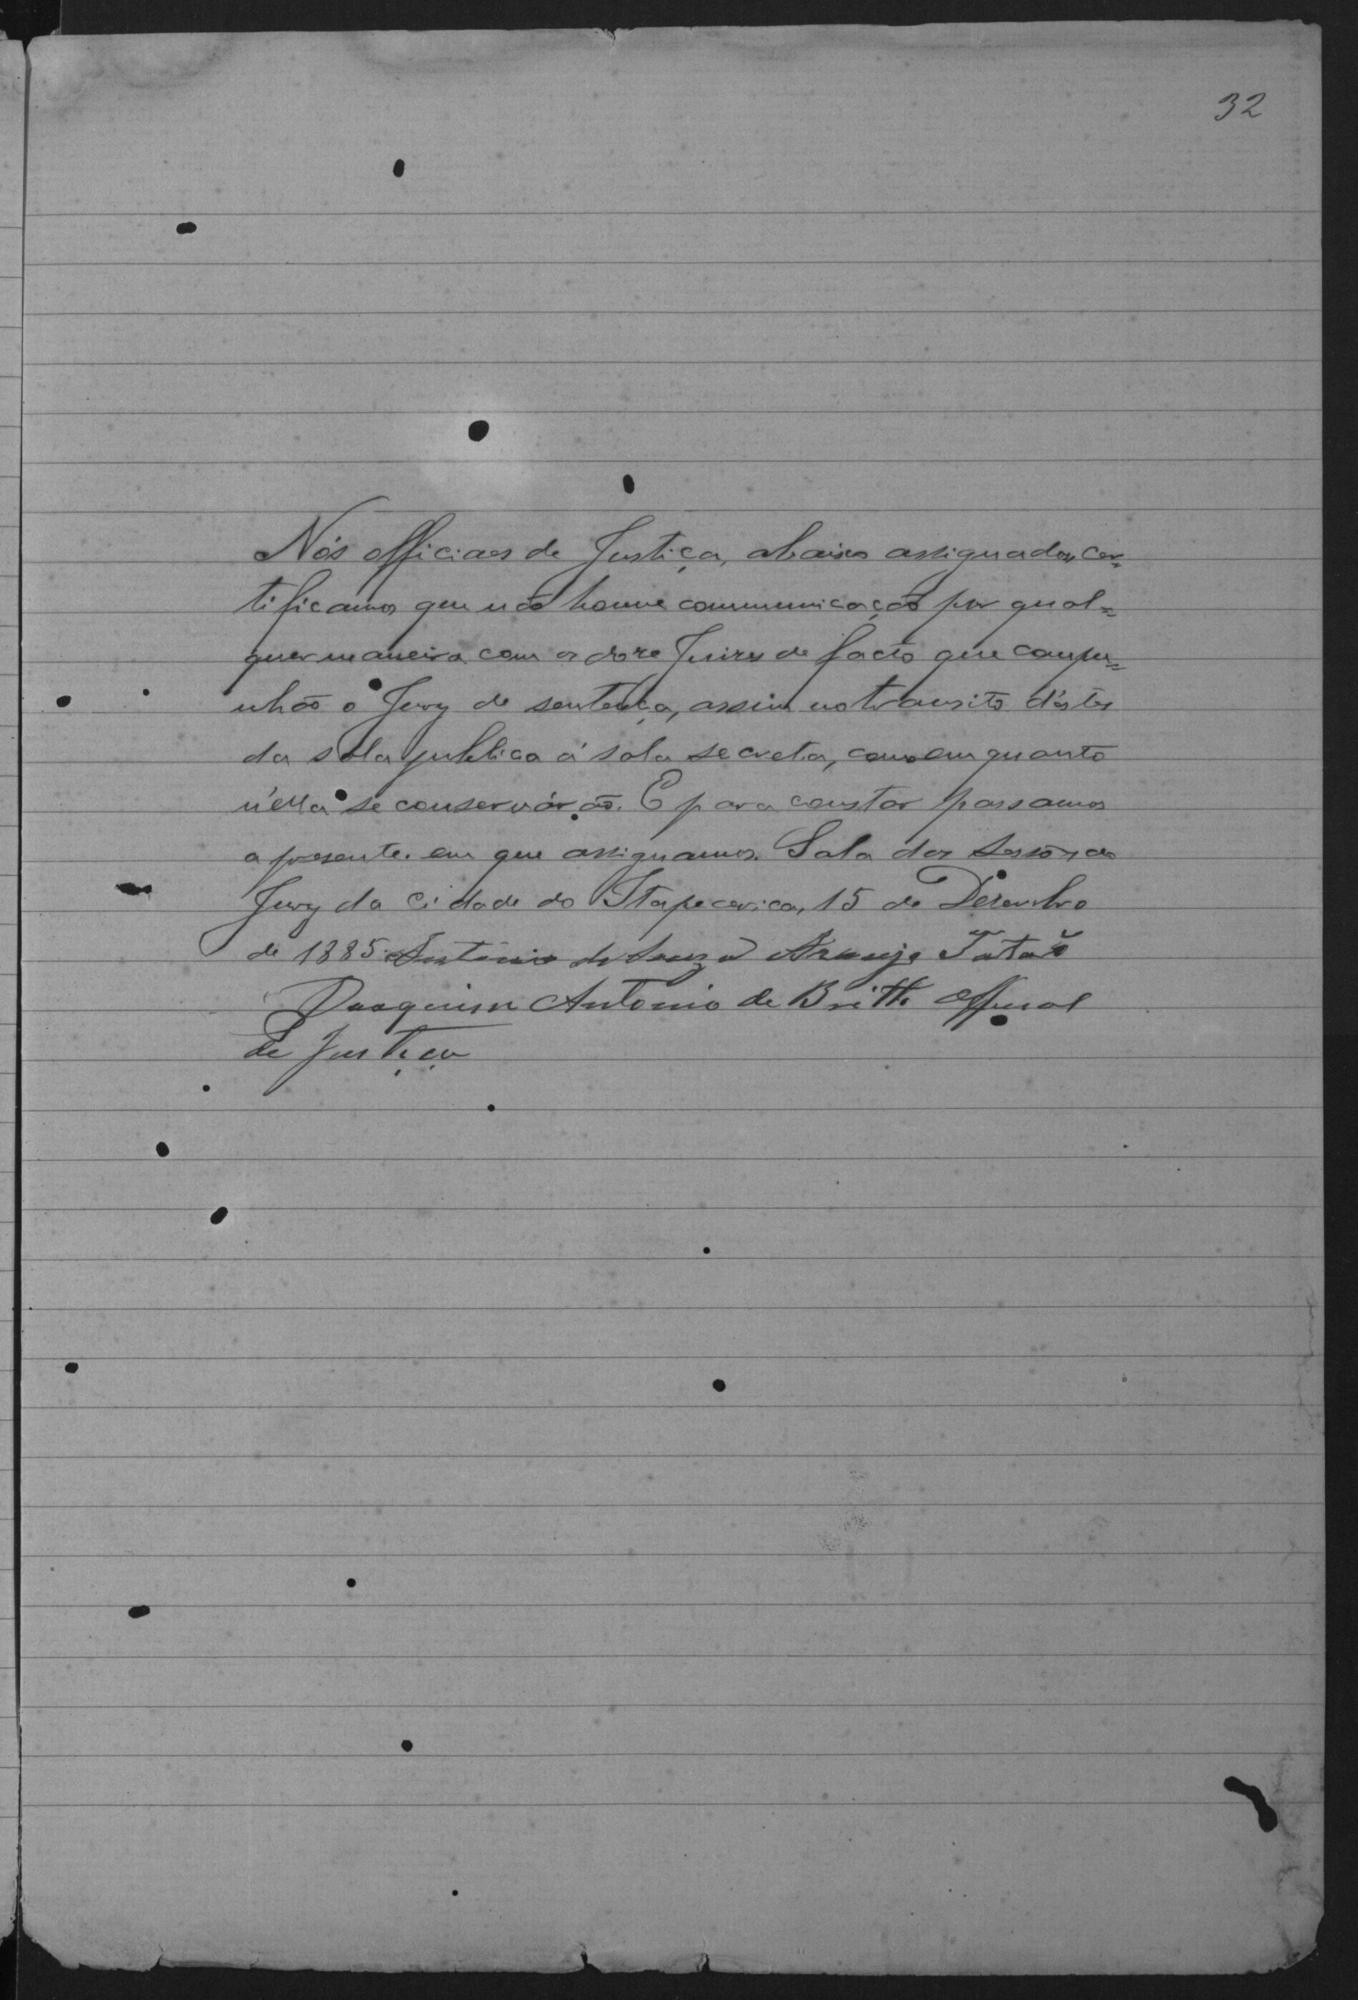 32
Nós officiaes de Justiça, abaixo assignados, cer=
tificamos que não houve communicação por qual=
quer maneira com os doze Juizes de facto que compu=
nhão o Jury de sentença, assim no transito d'estes
da sala publica á sala secreta, como em quanto
n'ella se conservárão. E para constar passamos
a presente em que assignamos. Sala das Sessões do
Jury da Cidade do Itapecerica, 15 de Desembro
de 1885. Antonio de Souza Araujo Tatão
Joaquim Antonio de Britto official
de Justiça